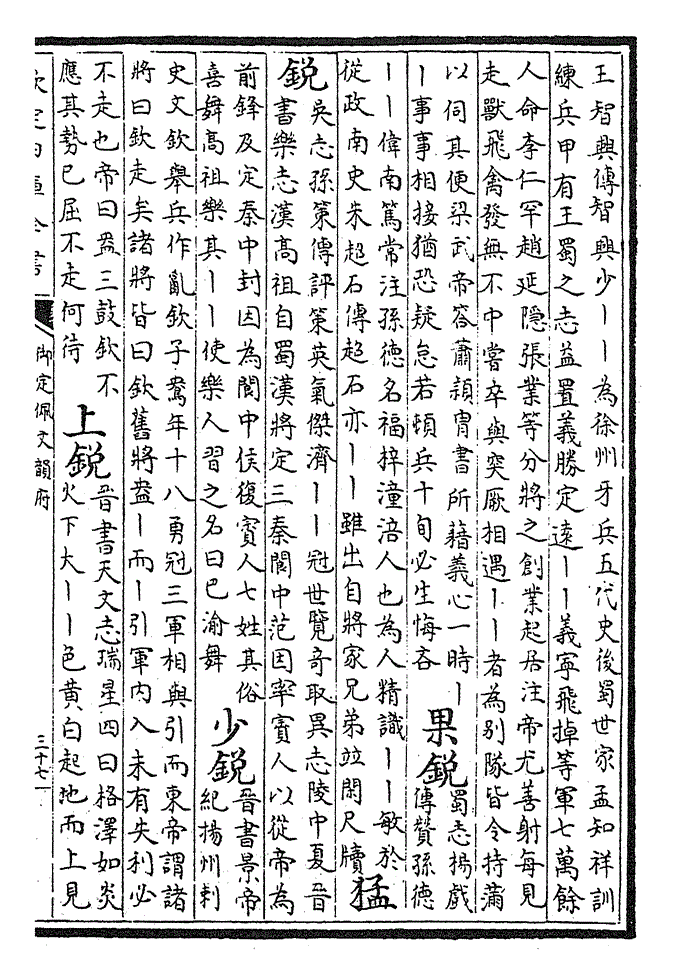 王智興傳智興少丨丨為徐州牙兵五代史後蜀世家孟知祥訓
練兵甲有王蜀之志益置義勝定遠丨丨義寧飛掉等軍七萬餘
人命李仁罕趙延隱張業等分將之創業起居注帝尤善射每見
走獸飛禽發無不中嘗卒與突厥相遇丨丨者為别隊皆令持滿
以伺其便梁武帝答蕭頴胄書所藉義心一時丨
丨事事相接猶恐疑怠若頓兵十旬必生悔吝
果銳
蜀志楊戲
傳贊孫德
丨丨偉南篤常注孫德名福梓潼涪人也為人精識丨丨敏於
從政南史朱超石傳超石亦丨丨雖出自將家兄弟並閑尺牘
猛
銳
吳志孫策傳評策英氣傑濟丨丨冠世覽奇取異志陵中夏晉
書樂志漢高祖自蜀漢將定三秦閬中范因率賨人以從帝為
前鋒及定秦中封因為閬中侯復賨人七姓其俗
喜舞高祖樂其丨丨使樂人習之名曰巴渝舞
少銳
晉書景帝
紀揚州刺
史文欽舉兵作亂欽子鴦年十八勇冠三軍相與引而東帝謂諸
將曰欽走矣諸將皆曰欽舊將鴦丨而丨引軍内入未有失利必
不走也帝曰鴦三鼓欽不
應其勢已屈不走何待
上銳
晉書天文志瑞星四曰格澤如炎
火下大丨丨色黄白起地而上見
欽定四庫全書
御定佩文韻府
三十七